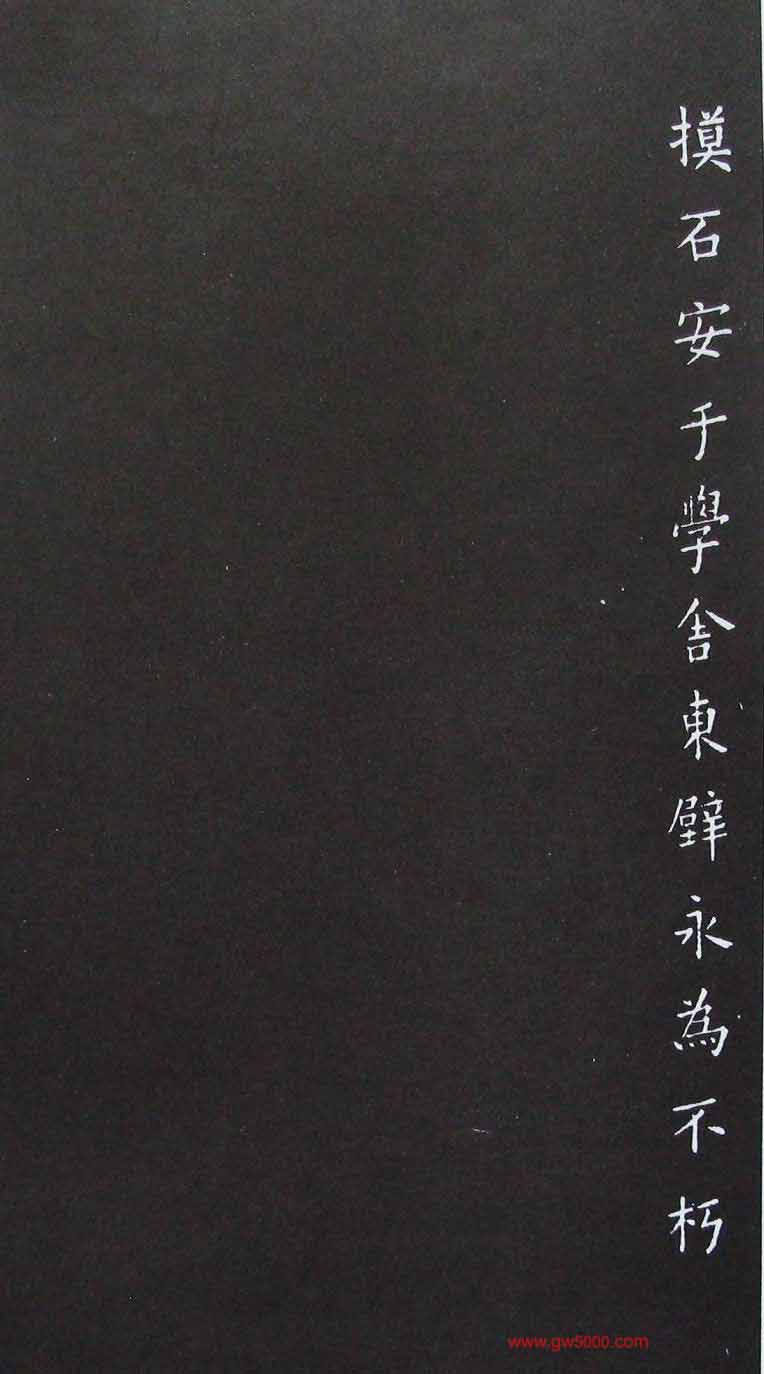 摸石安于學舎東壁永為不朽
www.gw5000.com